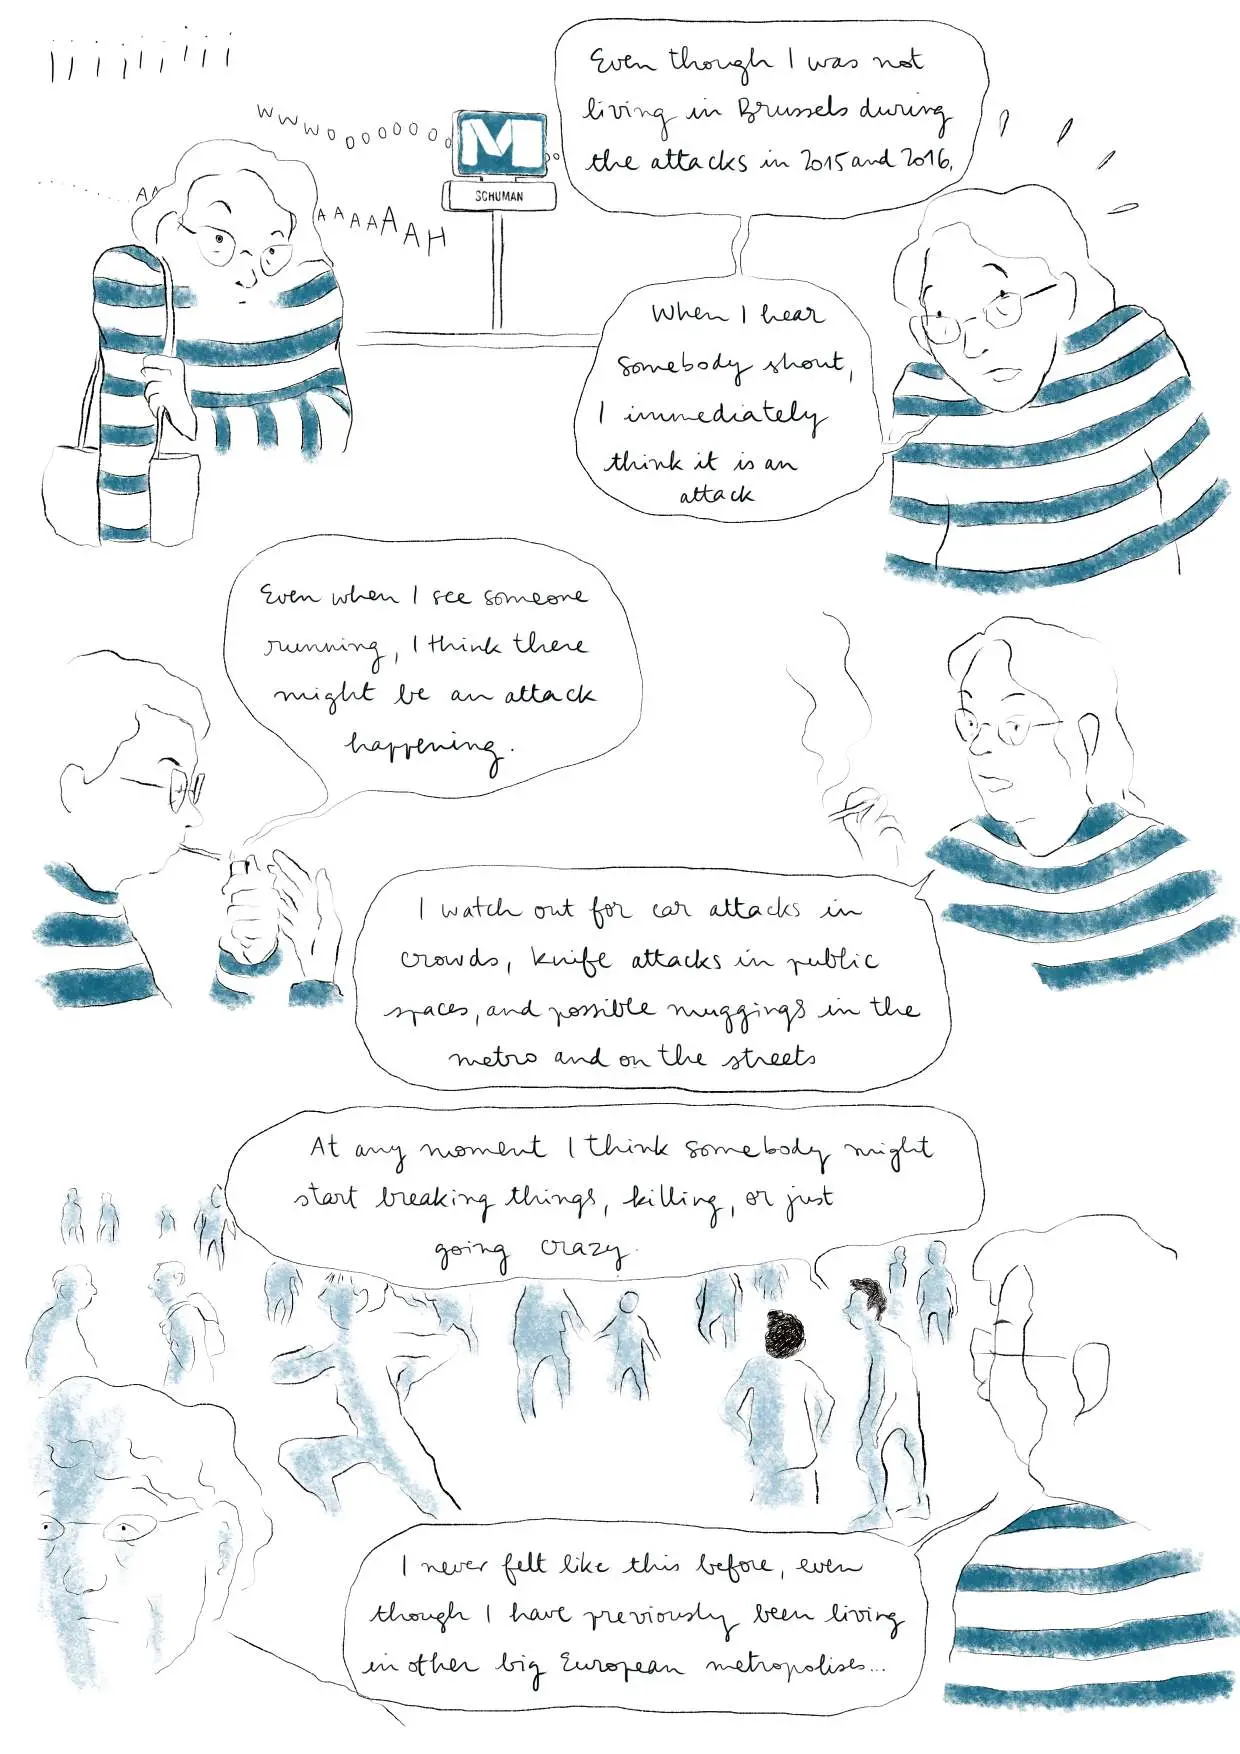 iiiiiiii
WWWOOOOOOO
M
SCHUMAN
AAAAAAAH
Even though I was not
living in Brussels during
the attacks in 2015 and 2016.
When I hear
somebody shout,
I immediately
think it is an
attack
Even when I see someone
running, I think there
might be an attack
happening.
I watch out for car attacks in
crowds, knife attacks in public
spaces, and possible muggings in the
metro and on the streets
At any moment I think somebody might
start breaking things, killing, or just
going crazy.
I never felt like this before, even
though I have previously been living
in other big European metropolises...